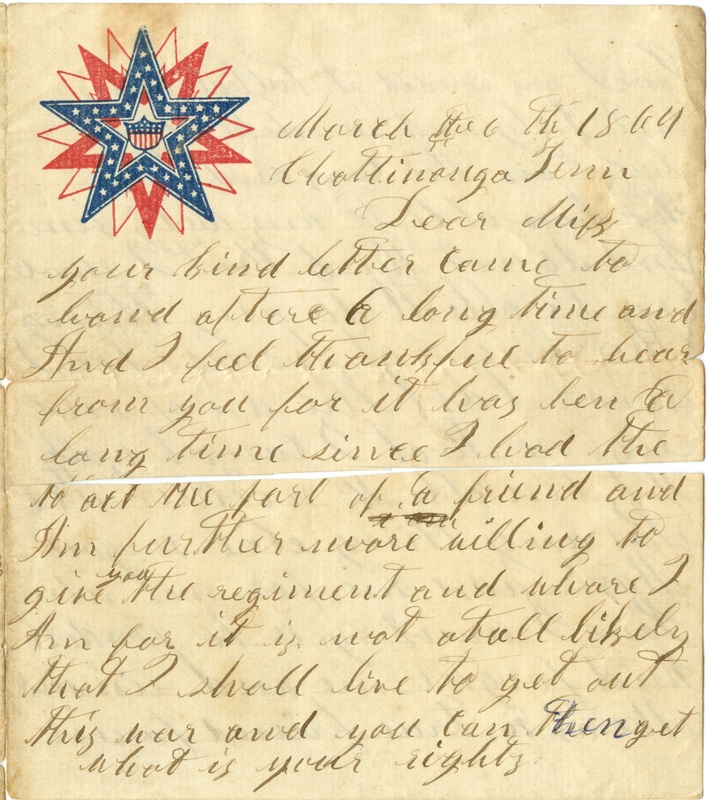 March the 6 th 1864
Chattinouga Tenn
Dear Miss
your kind letter came to
hand aftere a long time and
And I feel thankful to hear
from you for it has ben a
long time since I had the
to act the part of a friend and
Am further more willing to
give you the regiment and whare I
Am for it is not atall likely
that I shall live to get out
this war and you can then get
what is your rights